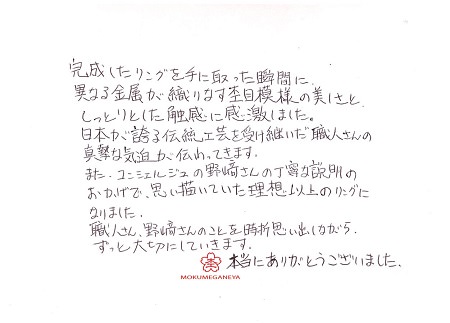 完成したリングを手に取った瞬間に、
異なる金属が織りなす杢目模様の美しさと、
しっとりとした触感に感激しました。
日本が誇る伝統工芸を受け継いだ職人さんの
真摯な気迫が伝わってきます。
また、コンシェルジュの野﨑さんの丁寧な説明の
おかげで、思い描いていた理想以上のリングに
なりました。
職人さん、野﨑さんのことを時折思い出しながら、
ずっと大切にしていきます。
本当にありがとうございました。
MOKUMEGANEYA